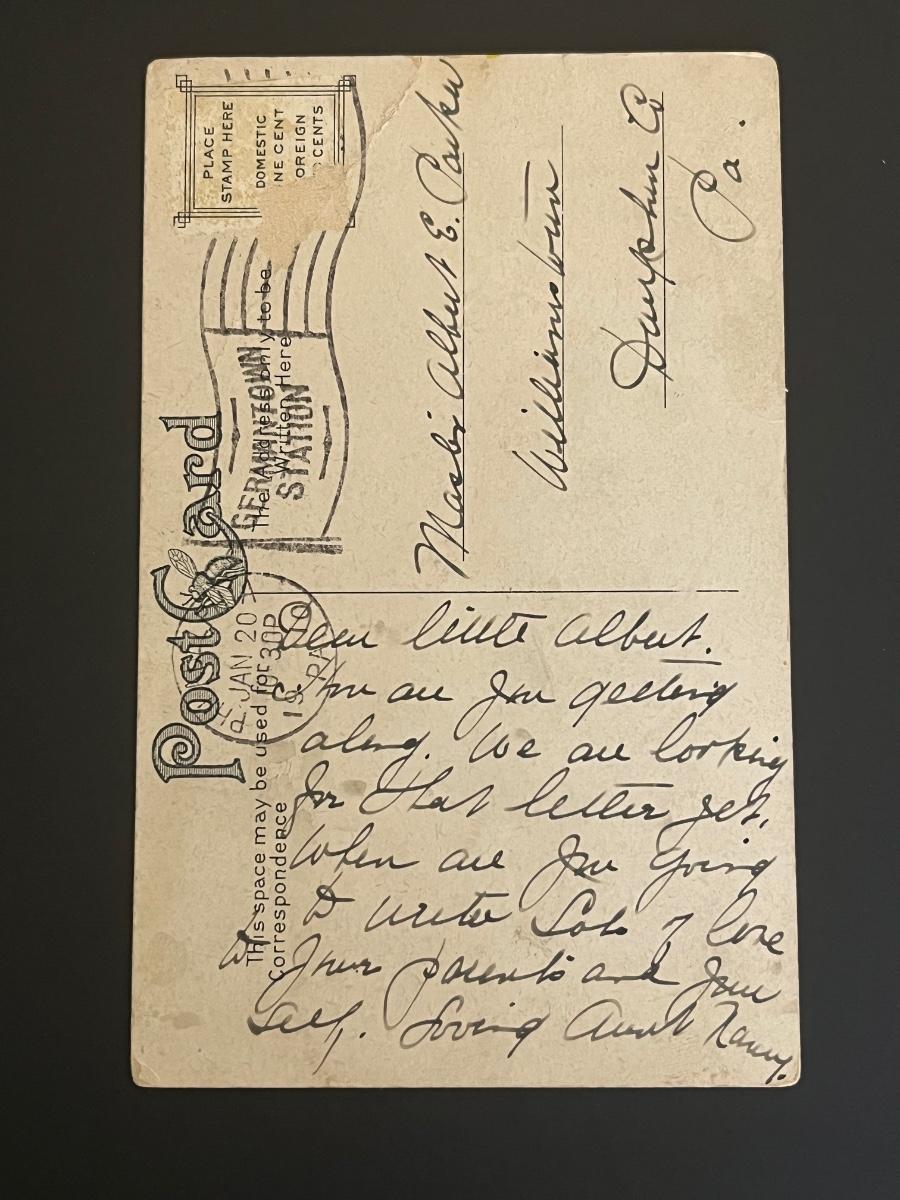 Post Card
PLACE
STAMP HERE
DOMESTIC
NE CENT
OREIGN
CENTS
This space may be used for
Correspondence
The Address only to be
Written Here
GERMANTOWN
STATION
JAN 20
30P
19
PA
Master Albert E. Parker
Williamstown
Dauphin Co
Pa.
Dear little Albert.
How are you getting
along. We are looking
for that letter yet,
When are you going
to write Lots of love
to your parents and your
self. Loving Aunt Nanny.